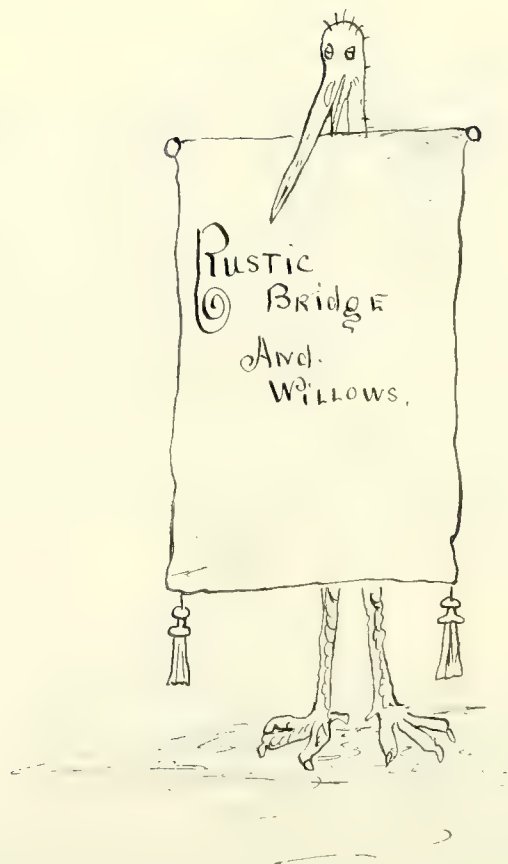 Rustic
Bridge
And.
Willows.